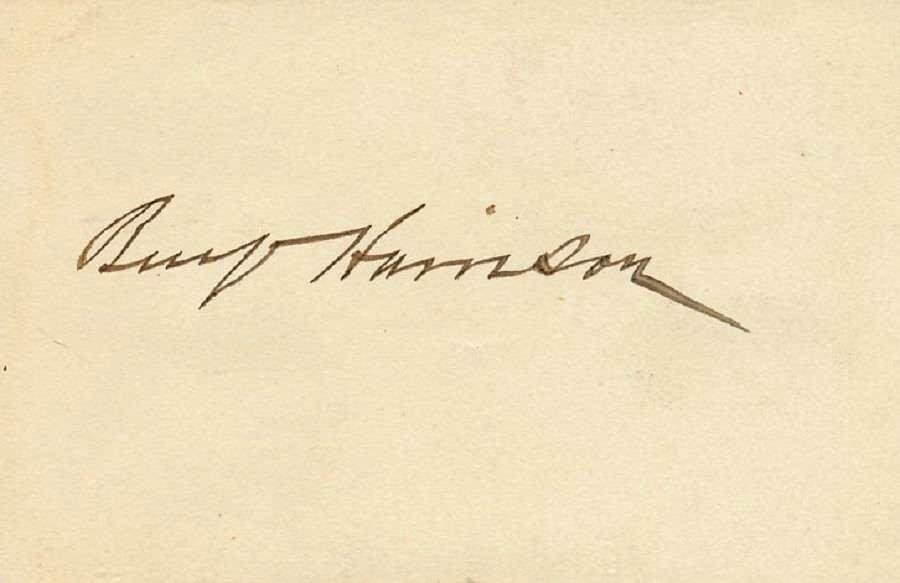 Benj Harrison